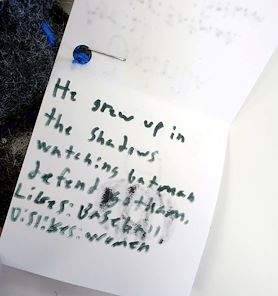 He grew up in
the shadows
watching batman
defend Gotham.
Likes: Baseball,
Dislikes: women